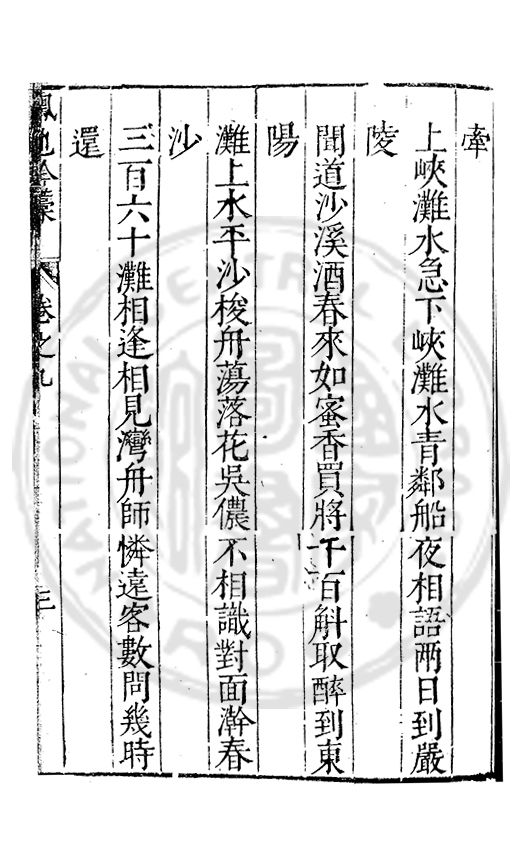 牽
上峽灘水急下峽灘水青鄰船夜相語兩日到嚴
陵
聞道沙溪酒春來如蜜香買將千百斛取醉到東
陽
灘上水平沙梭舟蕩落花吳儂不相識對面澣春
沙
三百六十灘相逢相見灣舟師憐遠客數問幾時
還
卷之九
三